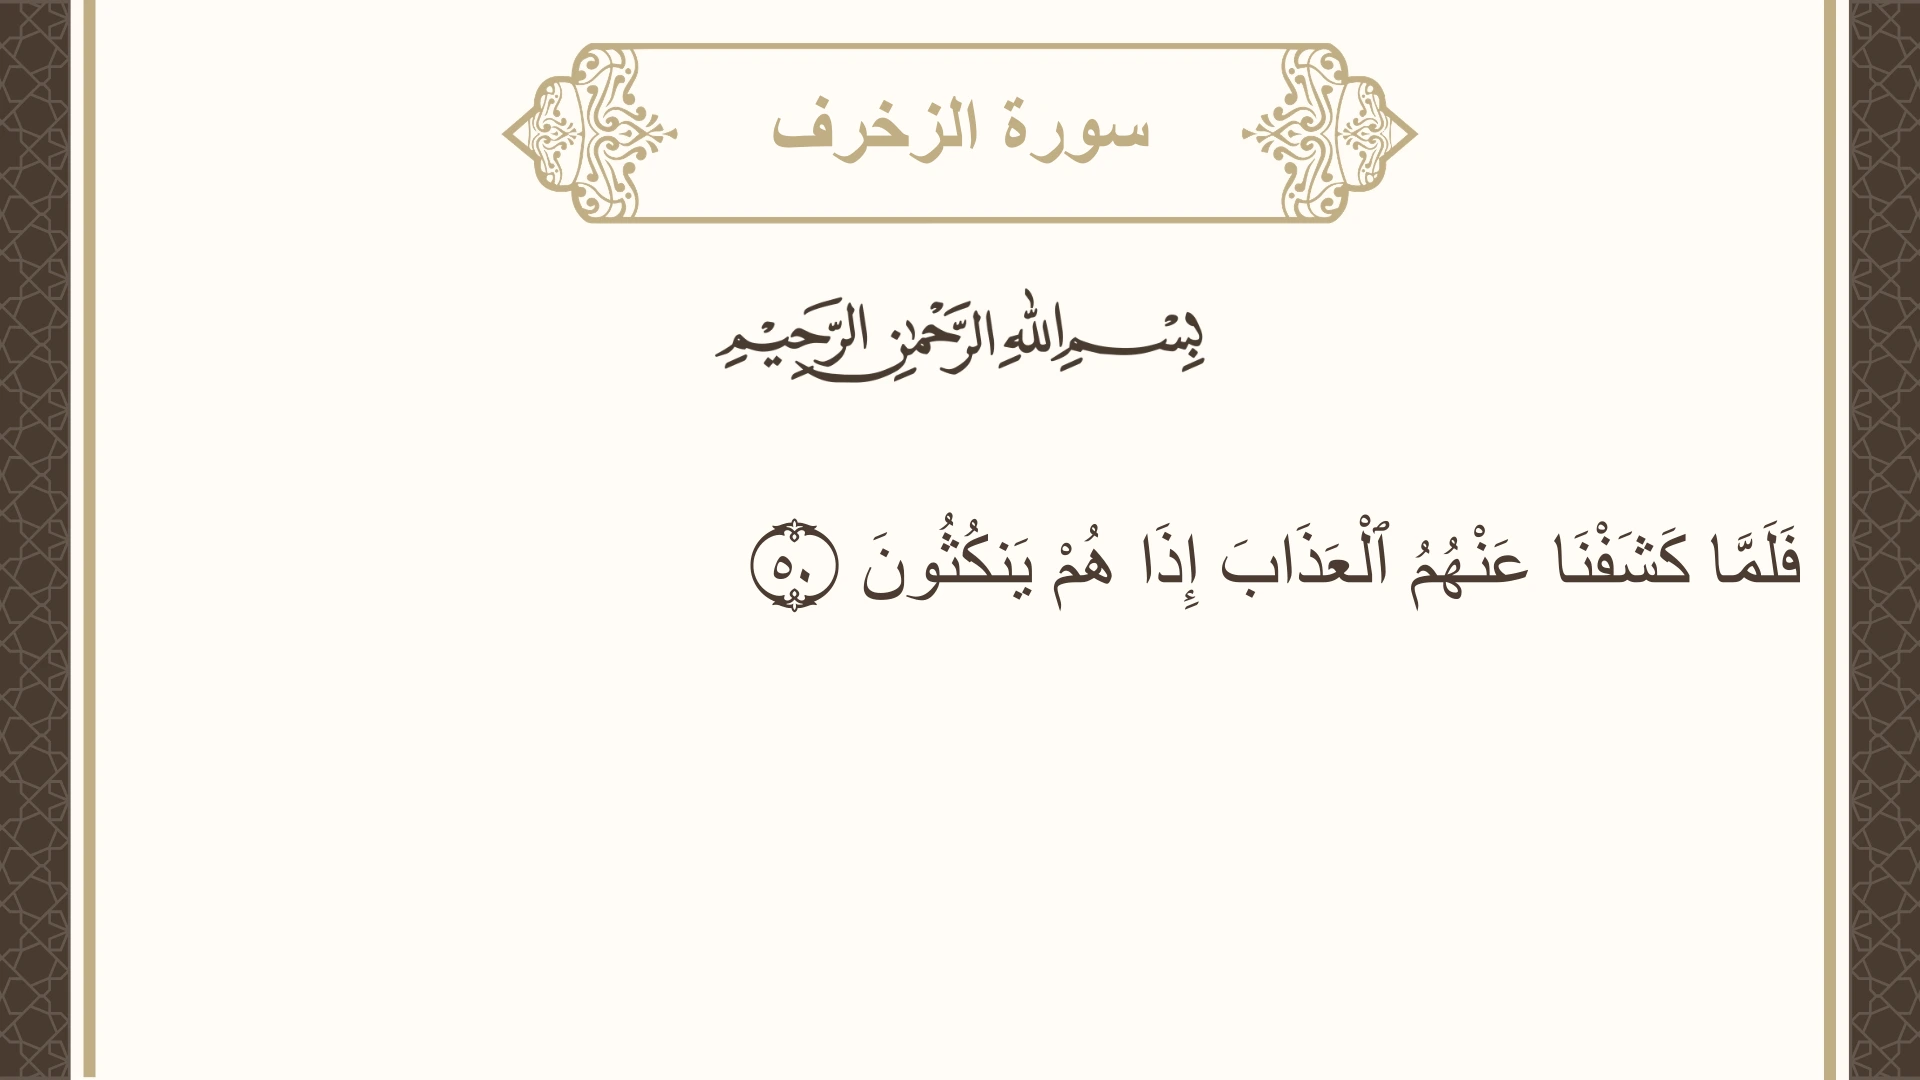 سورة الزخرف
بِسْمِ اللهِ الرَّحْمٰنِ الرَّحِيْمِ
فَلَمَّا كَشَفْنَا عَنْهُمُ ٱلْعَذَابَ إِذَا هُمْ يَنكُثُونَ ٥٠